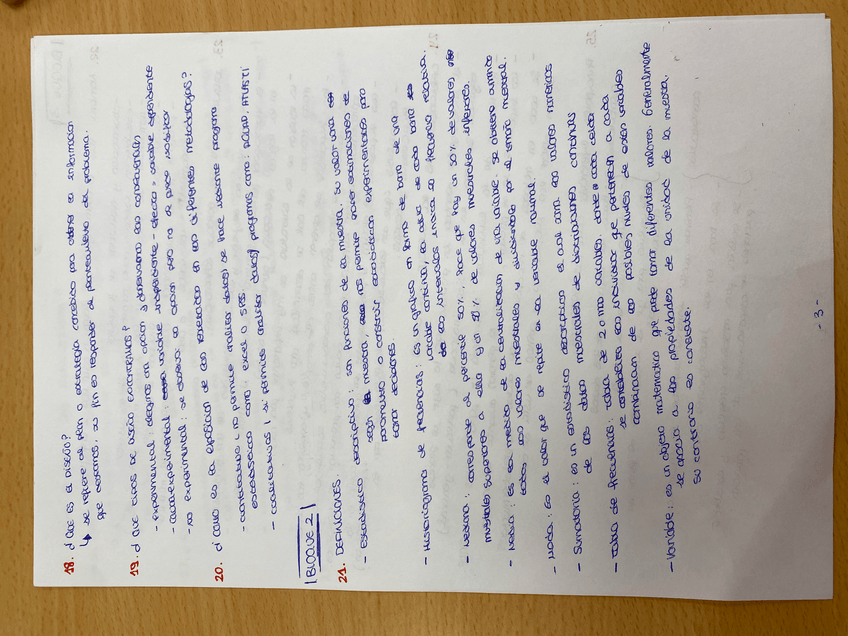 18. ¿ Que es el DISEÑO?
↳ se refiere al plan o estrategia concebida para obtener la informacion
que deseamos. su fin es responder al planteamiento del problema.
19. ¿ Que tipos de DISEÑO EXPERIMENTALES?
- experimental: elegimos una opcion y observamos las consecuencias
- Cuasiexperimental: variable independiente - efecto > variable dependiente
- no experimental: se observa la opcion pero no se puede modificar
20. ¿ Como es la exposicion de los resultados en las diferentes metodologias?
- cuantitativa ( no permite analizar datos) se hace mediante programa
estadisticos como: Excel o SPSS.
- cualitativas ( si permite analizar datos) programas como: AQUAD, ATLAS.TI
| BLOQUE 2 |
21. DEFINICIONES.
- Estadistico descriptivo: son funciones de la muestra. Su valor varia
segun la muestra, nos permite hacer estimaciones de
parametro o construir estadisticos experimentales para
tomar decisiones.
- Histograma de frecuencias: es un grafico en forma de barra de una
variable continua, la altura de cada barra
los intervalos indica la frecuencia relativa.
- Mediana: corresponde al percentil 50%, hace que hay un 50% de valores
muestrales superiores a ella y un 50% de valores muestrales inferiores.
- Media: es la medida de la centralizacion de una variable. se obtiene sumando
todos los valores muestrales y dividiendolos por el tamaño muestral.
- Moda: Es el valor que se repite en la variable nominal.
- Sumatoria: es un estadistico descriptivo el cual suma los valores numericos
de los datos muestrales de distribuciones continuas
- Tabla de frecuencias: tabla de 2 o mas variables, donde cada celda
se contabiliza los individuos que pertenecen a cada
combinacion de los posibles niveles de estas variables
- Variable: es un objeto matematico que puede tomar diferentes valores. Generalmente
se asocia a las propiedades de la unidad de la muestra.
su contrario es constante.
- 3 -